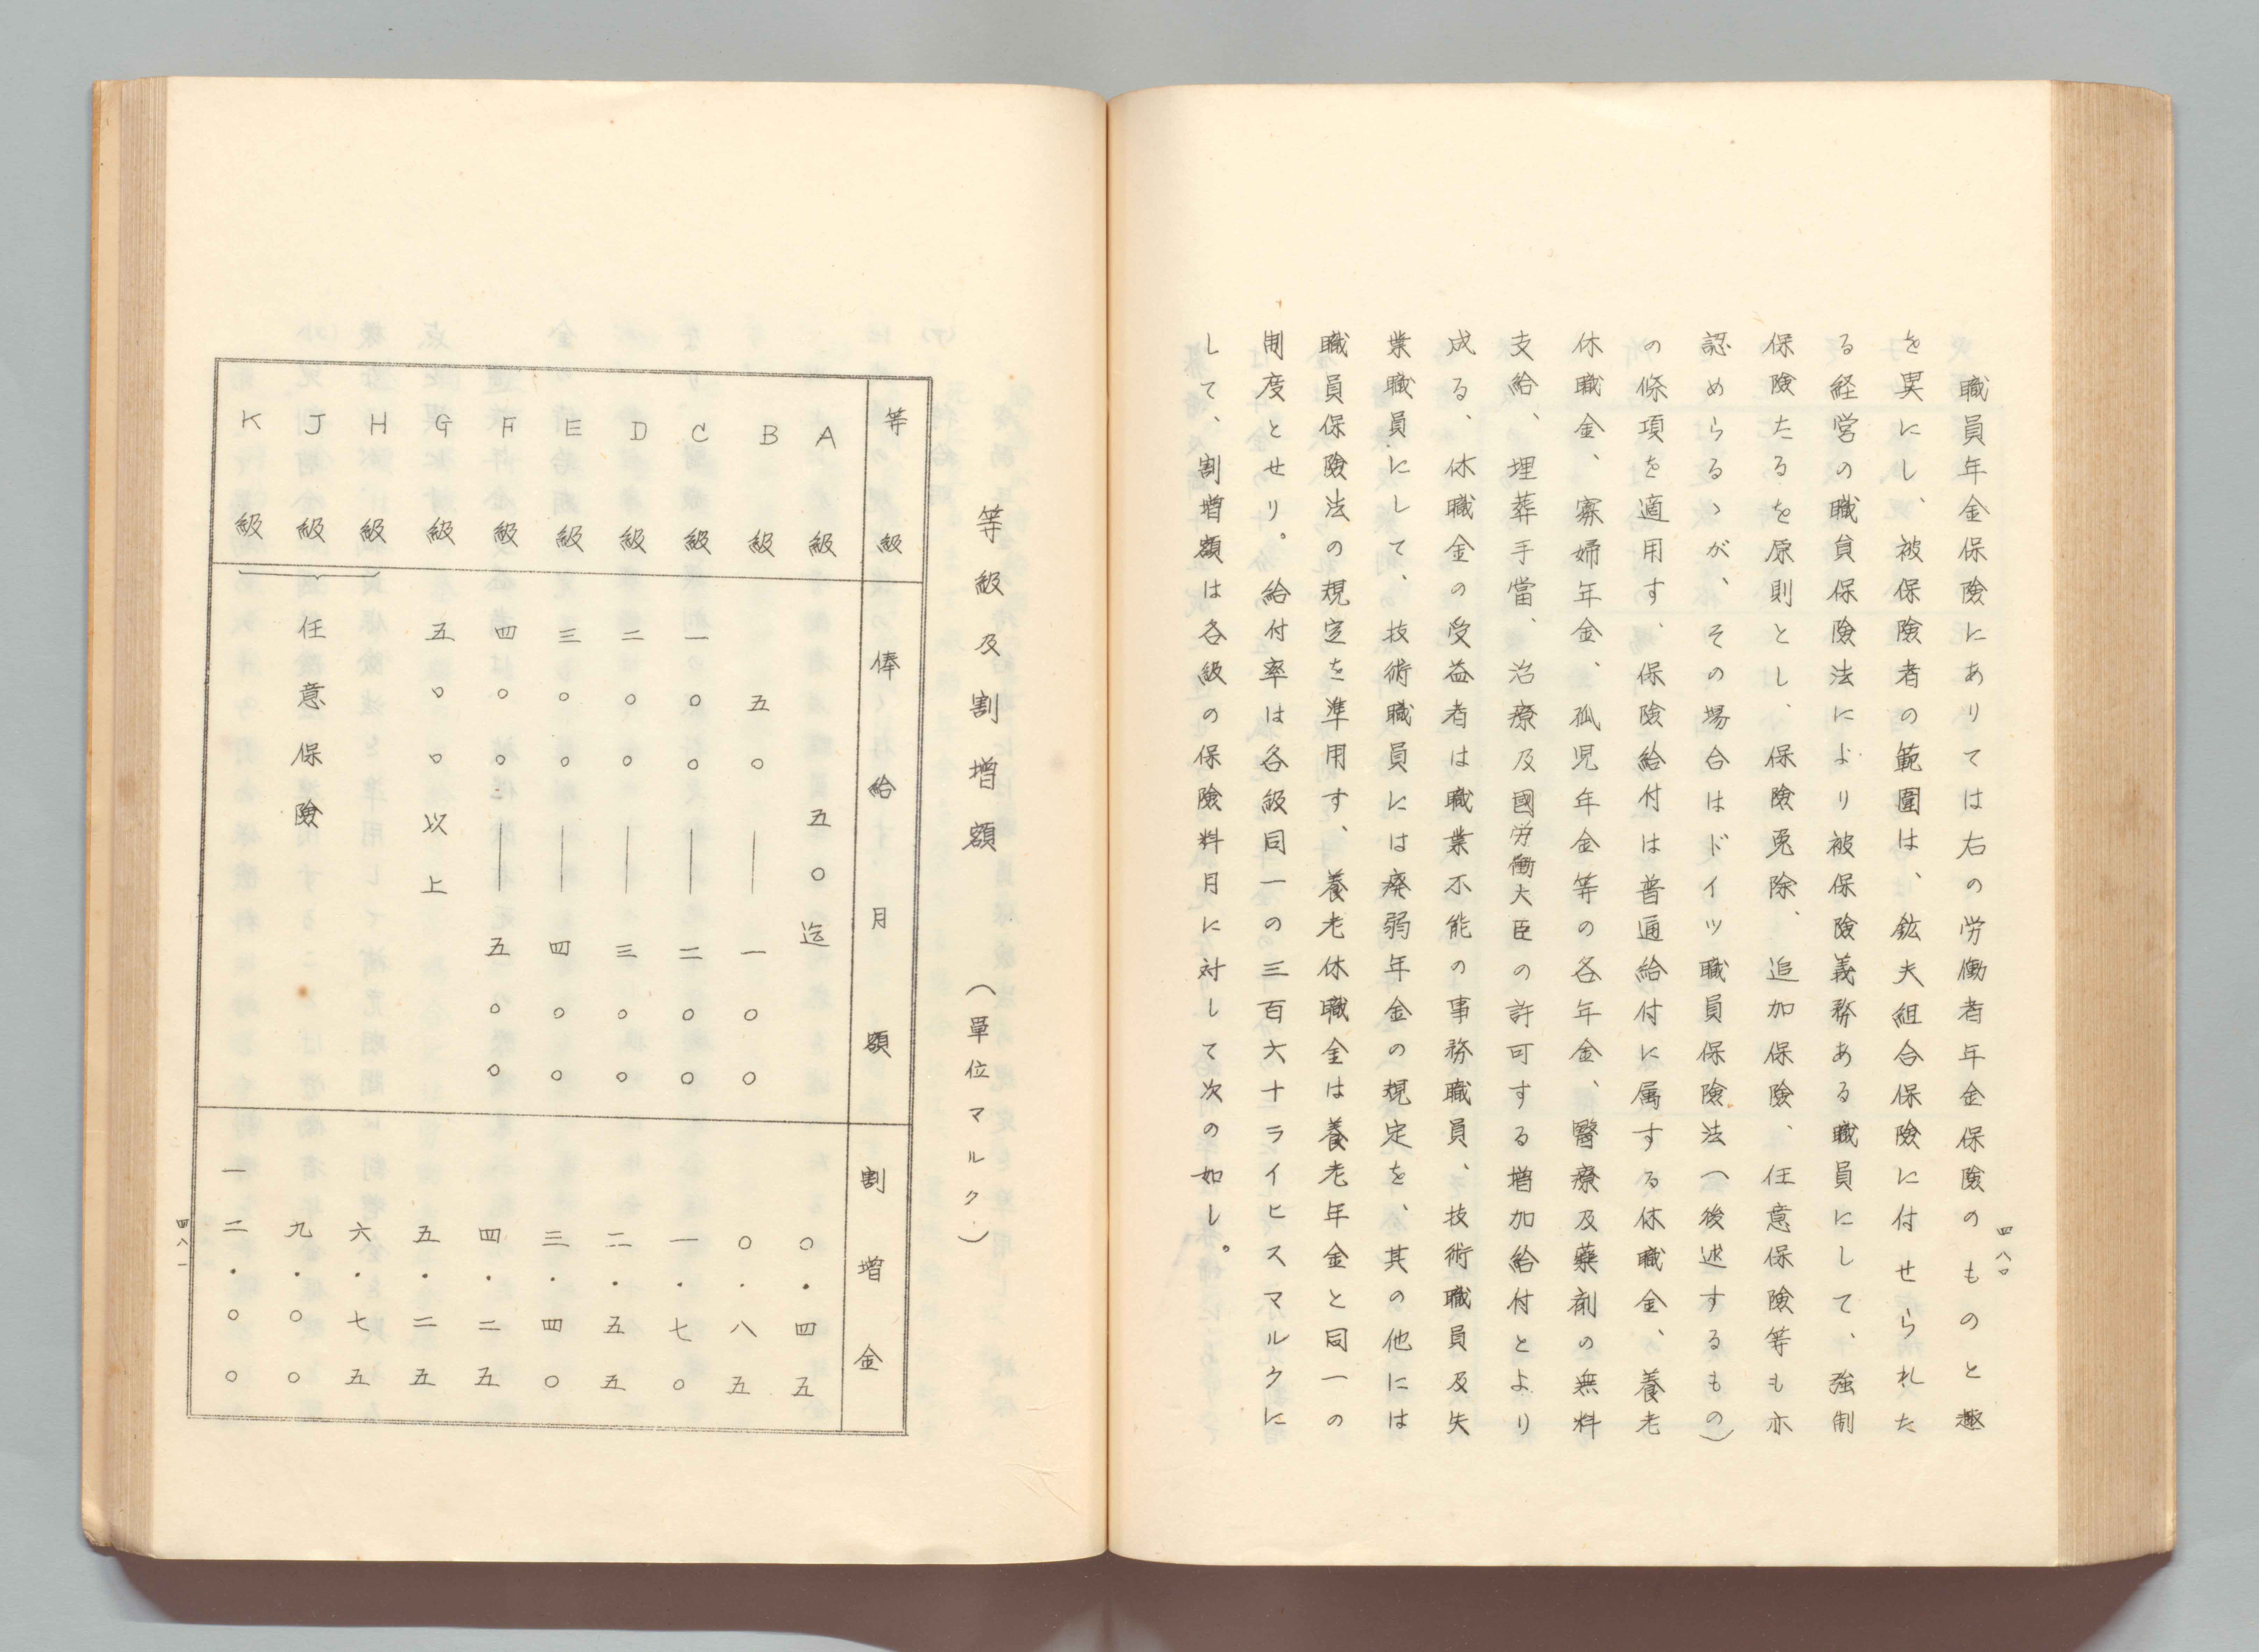 職員年金保険にありては右の労働者年金保険のものと趣
を異にし、被保険者の範圍は、鉱夫組合保険に付せられた
る経営の職員保険法により被保険義務ある職員にして、強制
保険たるを原則とし、保険免除、追加保険、任意保険等も亦
認めらるゝが、その場合はドイツ職員保険法(後述するもの)
の條項を適用す、保険給付は普通給付に属する休職金、養老
休職金、寡婦年金、孤児年金等の各年金、醫療及藥剤の無料
支給、埋葬手當、治療及國労働大臣の許可する増加給付とより
成る、休職金の受益者は職業不能の事務職員、技術職員及失
業職員にして、技術職員には廃弱年金の規定を、其の他には
職員保険法の規定を準用す、養老休職金は養老年金と同一の
制度とせり。給付率は各級同一の三百六十ライヒスマルクに
して、割増額は各級の保険料月に対して次の如し。
四八〇
等級及割増額 (單位マルク)
等級 俸給月額 割増金
A級 五〇迄 〇・四五
B級 五〇―一〇〇 〇・八五
C級 一〇〇―二〇〇 一・七〇
D級 二〇〇―三〇〇 二・五五
E級 三〇〇―四〇〇 三・四〇
F級 四〇〇―五〇〇 四・二五
G級 五〇〇以上 五・二五
H級 六・七五
J級 任意保險 九・〇〇
K級 一二・〇〇
四八一